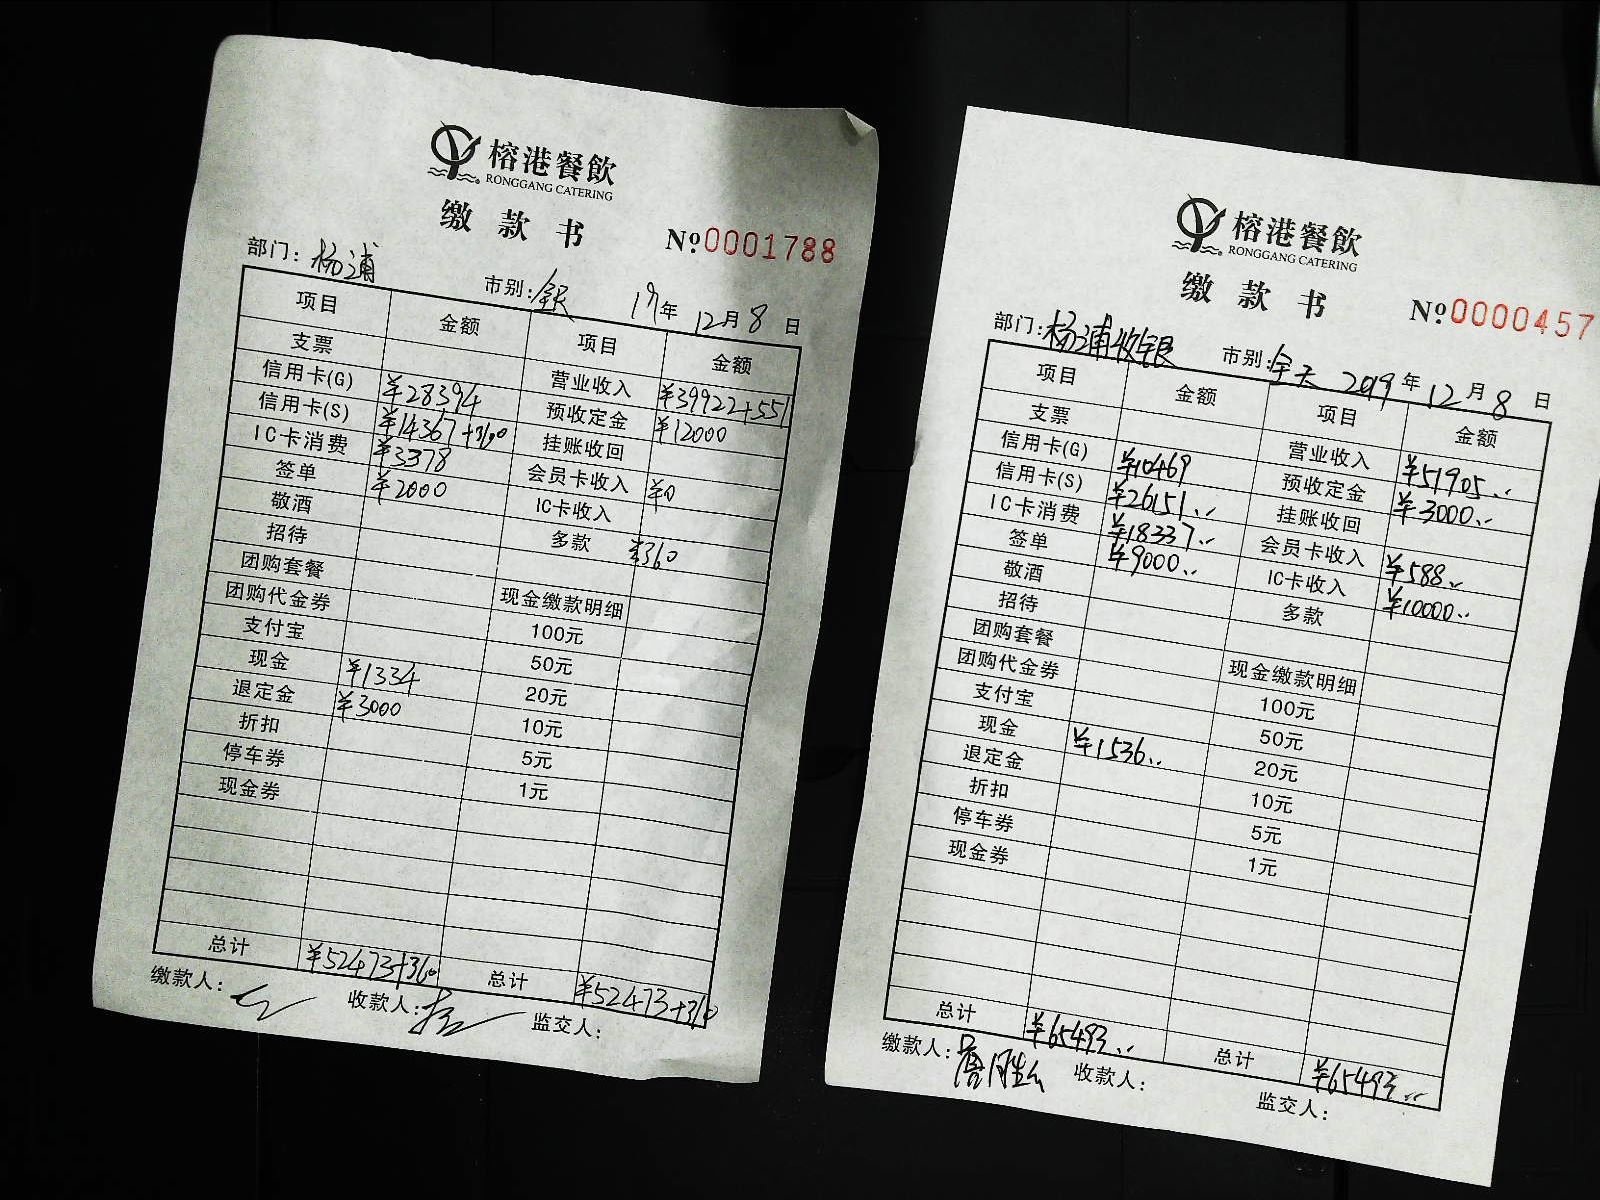 榕港餐飲
RONGGANG CATERING
缴款书
№0001788
部门：杨浦 市别： 17年12月8日
项目 金额 项目 金额
支票 营业收入 ¥39922+551
信用卡(G) ¥28394 预收定金 ¥12000
信用卡(S) ¥14367+360 挂账收回
IC卡消费 ¥3378 会员卡收入 ¥0
签单 ¥2000 IC卡收入
敬酒 多款 ¥360
招待
团购套餐 现金缴款明细
团购代金券 100元
支付宝 50元
现金 ¥1334 20元
退定金 ¥3000 10元
折扣 5元
停车券 1元
现金券
总计 ¥52473+360 总计 ¥52473+360
缴款人： 收款人： 监交人：
榕港餐飲
RONGGANG CATERING
缴款书
№0000457
部门：杨浦收银 市别：全天 2019年12月8日
项目 金额 项目 金额
支票 营业收入 ¥51905..
信用卡(G) ¥10469 预收定金 ¥3000..
信用卡(S) ¥26151.. 挂账收回
IC卡消费 ¥18337.. 会员卡收入 ¥588..
签单 ¥9000.. IC卡收入 ¥10000..
敬酒 多款
招待
团购套餐 现金缴款明细
团购代金券 100元
支付宝 50元
现金 ¥1536.. 20元
退定金 10元
折扣 5元
停车券 1元
现金券
总计 ¥65493.. 总计 ¥65493..
缴款人： 收款人： 监交人：